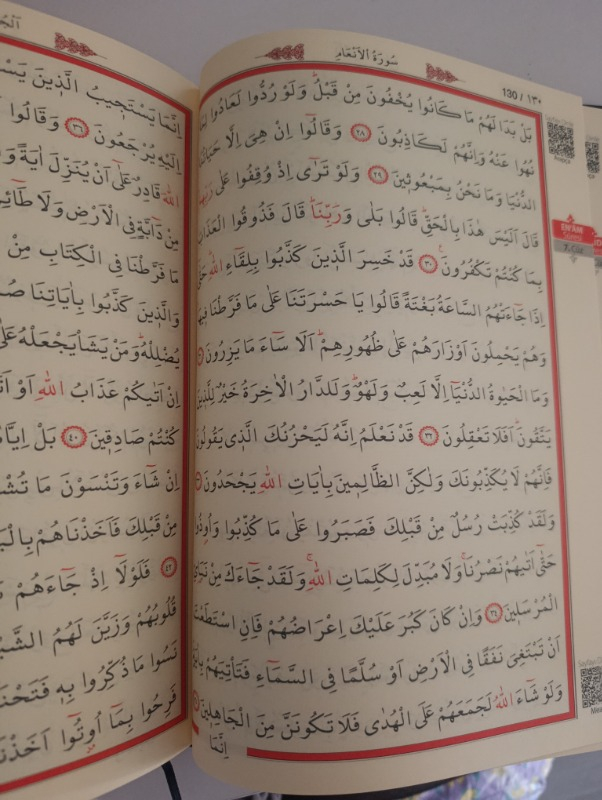 130 / ١٣٠
سُورَةُ الْاَنْعَامِ
بَلْ بَدَا لَهُمْ مَا كَانُوا يُخْفُونَ مِنْ قَبْلُ وَلَوْ رُدُّوا لَعَادُوا لِمَا
نُهُوا عَنْهُ وَاِنَّهُمْ لَكَاذِبُونَ ٢٨ وَقَالُوا اِنْ هِيَ اِلَّا حَيَاتُنَا
الدُّنْيَا وَمَا نَحْنُ بِمَبْعُوثٖينَ ٢٩ وَلَوْ تَرٰٓى اِذْ وُقِفُوا عَلٰى رَبِّهِمْ
قَالَ اَلَيْسَ هٰذَا بِالْحَقِّ قَالُوا بَلٰى وَرَبِّنَا قَالَ فَذُوقُوا الْعَذَابَ
بِمَا كُنْتُمْ تَكْفُرُونَ ٣٠ قَدْ خَسِرَ الَّذٖينَ كَذَّبُوا بِلِقَٓاءِ اللّٰهِ حَتّٰٓى
اِذَا جَٓاءَتْهُمُ السَّاعَةُ بَغْتَةً قَالُوا يَا حَسْرَتَنَا عَلٰى مَا فَرَّطْنَا فٖيهَا
وَهُمْ يَحْمِلُونَ اَوْزَارَهُمْ عَلٰى ظُهُورِهِمْ اَلَا سَٓاءَ مَا يَزِرُونَ
وَمَا الْحَيٰوةُ الدُّنْيَٓا اِلَّا لَعِبٌ وَلَهْوٌ وَلَلدَّارُ الْاٰخِرَةُ خَيْرٌ لِلَّذٖينَ
يَتَّقُونَ اَفَلَا تَعْقِلُونَ ٣٢ قَدْ نَعْلَمُ اِنَّهُ لَيَحْزُنُكَ الَّذٖي يَقُولُونَ
فَاِنَّهُمْ لَا يُكَذِّبُونَكَ وَلٰكِنَّ الظَّالِمٖينَ بِاٰيَاتِ اللّٰهِ يَجْحَدُونَ
وَلَقَدْ كُذِّبَتْ رُسُلٌ مِنْ قَبْلِكَ فَصَبَرُوا عَلٰى مَا كُذِّبُوا وَاُوذُوا
حَتّٰٓى اَتٰيهُمْ نَصْرُنَا وَلَا مُبَدِّلَ لِكَلِمَاتِ اللّٰهِ وَلَقَدْ جَٓاءَكَ مِنْ نَبَا۬ئِ
الْمُرْسَلٖينَ ٣٤ وَاِنْ كَانَ كَبُرَ عَلَيْكَ اِعْرَاضُهُمْ فَاِنِ اسْتَطَعْتَ
اَنْ تَبْتَغِيَ نَفَقًا فِي الْاَرْضِ اَوْ سُلَّمًا فِي السَّمَٓاءِ فَتَأْتِيَهُمْ بِاٰيَةٍ
وَلَوْ شَٓاءَ اللّٰهُ لَجَمَعَهُمْ عَلَى الْهُدٰى فَلَا تَكُونَنَّ مِنَ الْجَاهِلٖينَ
اِنَّمَا
EN'ÂM
Sûresi
7. Cüz
اِنَّمَا يَسْتَجٖيبُ الَّذٖينَ
اِلَيْهِ يُرْجَعُونَ ٣٦ وَقَالُوا
اللّٰهَ قَادِرٌ عَلٰٓى اَنْ يُنَزِّلَ اٰيَةً
مِنْ دَٓابَّةٍ فِي الْاَرْضِ وَلَا
مَا فَرَّطْنَا فِي الْكِتَابِ مِنْ
وَالَّذٖينَ كَذَّبُوا بِاٰيَاتِنَا
يُضْلِلْهُ وَمَنْ يَشَأْ يَجْعَلْهُ
اِنْ اَتٰيكُمْ عَذَابُ اللّٰهِ اَوْ
كُنْتُمْ صَادِقٖينَ ٤٠ بَلْ
اِنْ شَٓاءَ وَتَنْسَوْنَ مَا
مِنْ قَبْلِكَ فَاَخَذْنَاهُمْ
٤٢ فَلَوْلَٓا اِذْ جَٓاءَهُمْ
قُلُوبُهُمْ وَزَيَّنَ لَهُمُ
نَسُوا مَا ذُكِّرُوا بِهٖ
فَرِحُوا بِمَٓا اُو۫تُٓوا